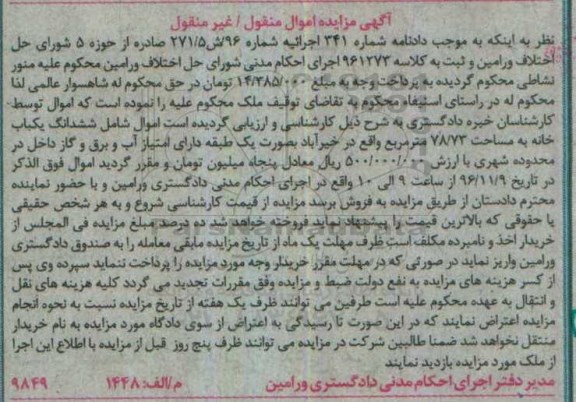 آگهی مزایده اموال منقول / غیر منقول
نظر به اینکه به موجب دادنامه شماره ۳۴۱ اجرائیه شماره ۹۶/ش۲۷۱/۵ صادره از حوزه ۵ شورای حل
اختلاف ورامین و ثبت به کلاسه ۹۶۱۲۷۳ اجرای احکام مدنی شورای حل اختلاف ورامین محکوم علیه منور
نشاطی محکوم گردیده به پرداخت وجه به مبلغ ۱۴/۳۸۵/۰۰۰ تومان در حق محکوم له شاهسوار عالمی لذا
محکوم له در راستای استیفاء محکوم به تقاضای توقیف ملک محکوم علیه را نموده است که اموال توسط
کارشناسان خبره دادگستری به شرح ذیل کارشناسی و ارزیابی گردیده است اموال شامل ششدانگ یکباب
خانه به مساحت ۷۸/۷۳ مترمربع واقع در خیرآباد بصورت یک طبقه دارای امتیاز آب و برق و گاز داخل در
محدوده شهری با ارزش ۵۰۰/۰۰۰/۰۰۰ ریال معادل پنجاه میلیون تومان و مقرر گردید اموال فوق الذکر
در تاریخ ۹۶/۱۱/۹ از ساعت ۹ الی ۱۰ واقع در اجرای احکام مدنی دادگستری ورامین و با حضور نماینده
محترم دادستان از طریق مزایده به فروش برسد مزایده از قیمت کارشناسی شروع و به هر شخص حقیقی
یا حقوقی که بالاترین قیمت را پیشنهاد نماید فروخته خواهد شد ده درصد مبلغ مزایده فی المجلس از
خریدار اخذ و نامبرده مکلف است ظرف مهلت یک ماه از تاریخ مزایده مابقی معامله را به صندوق دادگستری
ورامین واریز نماید در صورتی که در مهلت مقرر خریدار وجه مورد مزایده را پرداخت ننماید سپرده وی پس
از کسر هزینه های مزایده به نفع دولت ضبط و مزایده وفق مقررات تجدید می گردد کلیه هزینه های نقل
و انتقال به عهده محکوم علیه است طرفین می توانند ظرف یک هفته از تاریخ مزایده نسبت به نحوه انجام
مزایده اعتراض نمایند که در این صورت تا رسیدگی به اعتراض از سوی دادگاه مورد مزایده به نام خریدار
منتقل نخواهد شد ضمنا طالبین شرکت در مزایده می توانند ظرف پنج روز قبل از مزایده با اطلاع این اجرا
از ملک مورد مزایده بازدید نمایند
مدیر دفتر اجرای احکام مدنی دادگستری ورامین م/الف: ۱۴۴۸ ۹۸۴۹